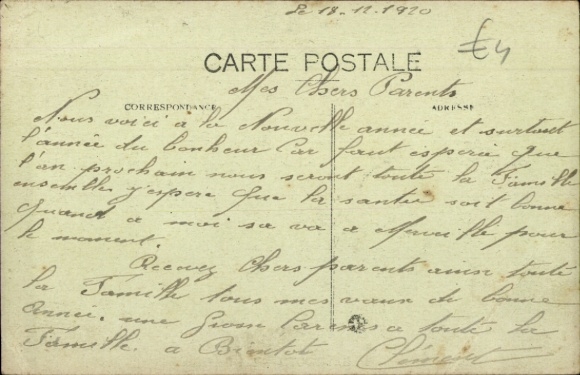 Le 18-12-1920
€4
CARTE POSTALE
Mes Chers Parents
CORRESPONDANCE
ADRESSE
Nous voici à la Nouvelle année et surtout
l'année du bonheur Car faut esperie que
l'an prochain nous seront toute la Famille
ensemble j'espere que la santer soit bonne
Quand a moi sa va a Merveille pour
le moment.
Recevez Chers parents ainsi toute
la Famille tous mes vœux de bonne
Année. une Grosse Carresse a toute la
Famille. a Bientot Clément